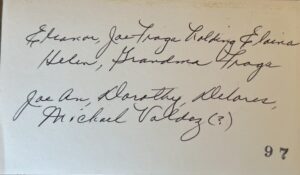 Eleanor, Joe Fraga holding Elaina
Helen, Grandma Fraga
Joe An, Dorothy, Delores,
Michael Valdez (?)
97